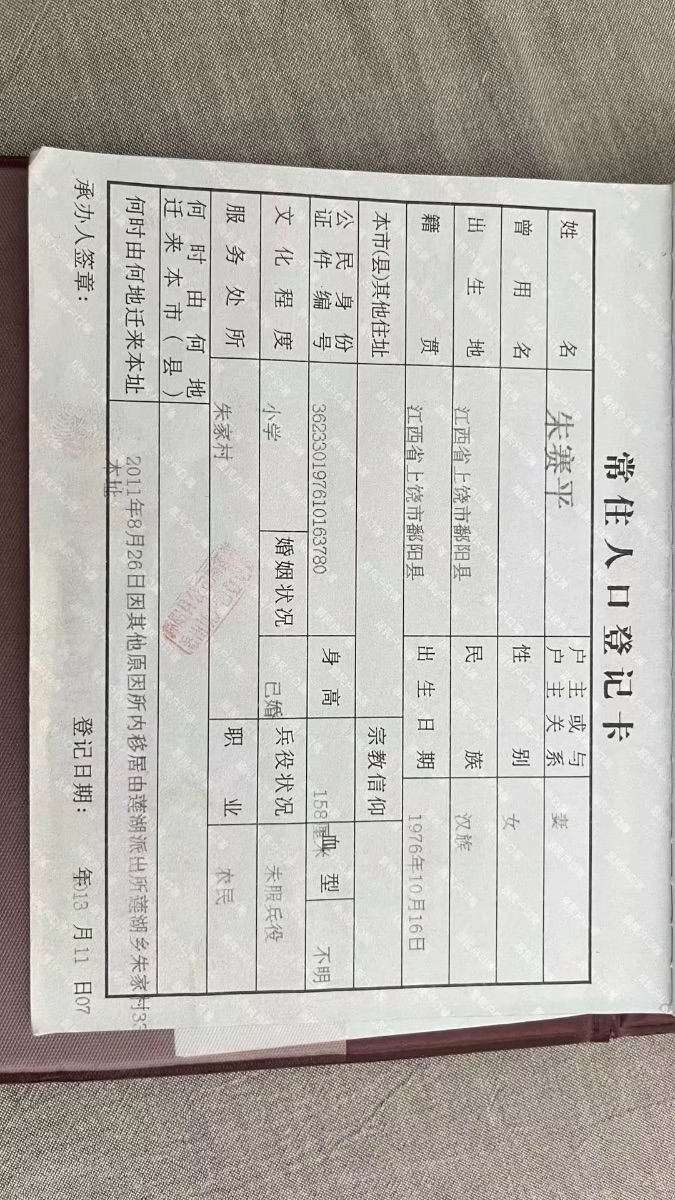 常住人口登记卡
姓名 朱赛平 户主或与户主关系 妻
曾用名 性别 女
出生地 江西省上饶市鄱阳县 民族 汉族
籍贯 江西省上饶市鄱阳县 出生日期 1976年10月16日
本市(县)其他住址 宗教信仰
公民身份证件编号 362330197610163780 身高 158厘米 血型 不明
文化程度 小学 婚姻状况 已婚 兵役状况 未服兵役
服务处所 朱家村 职业 农民
何时由何地迁来本市(县)
何时由何地迁来本址 2011年8月26日因其他原因所内移居由莲湖派出所莲湖乡朱家村33
本址
承办人签章: 登记日期: 年013 月11 日07